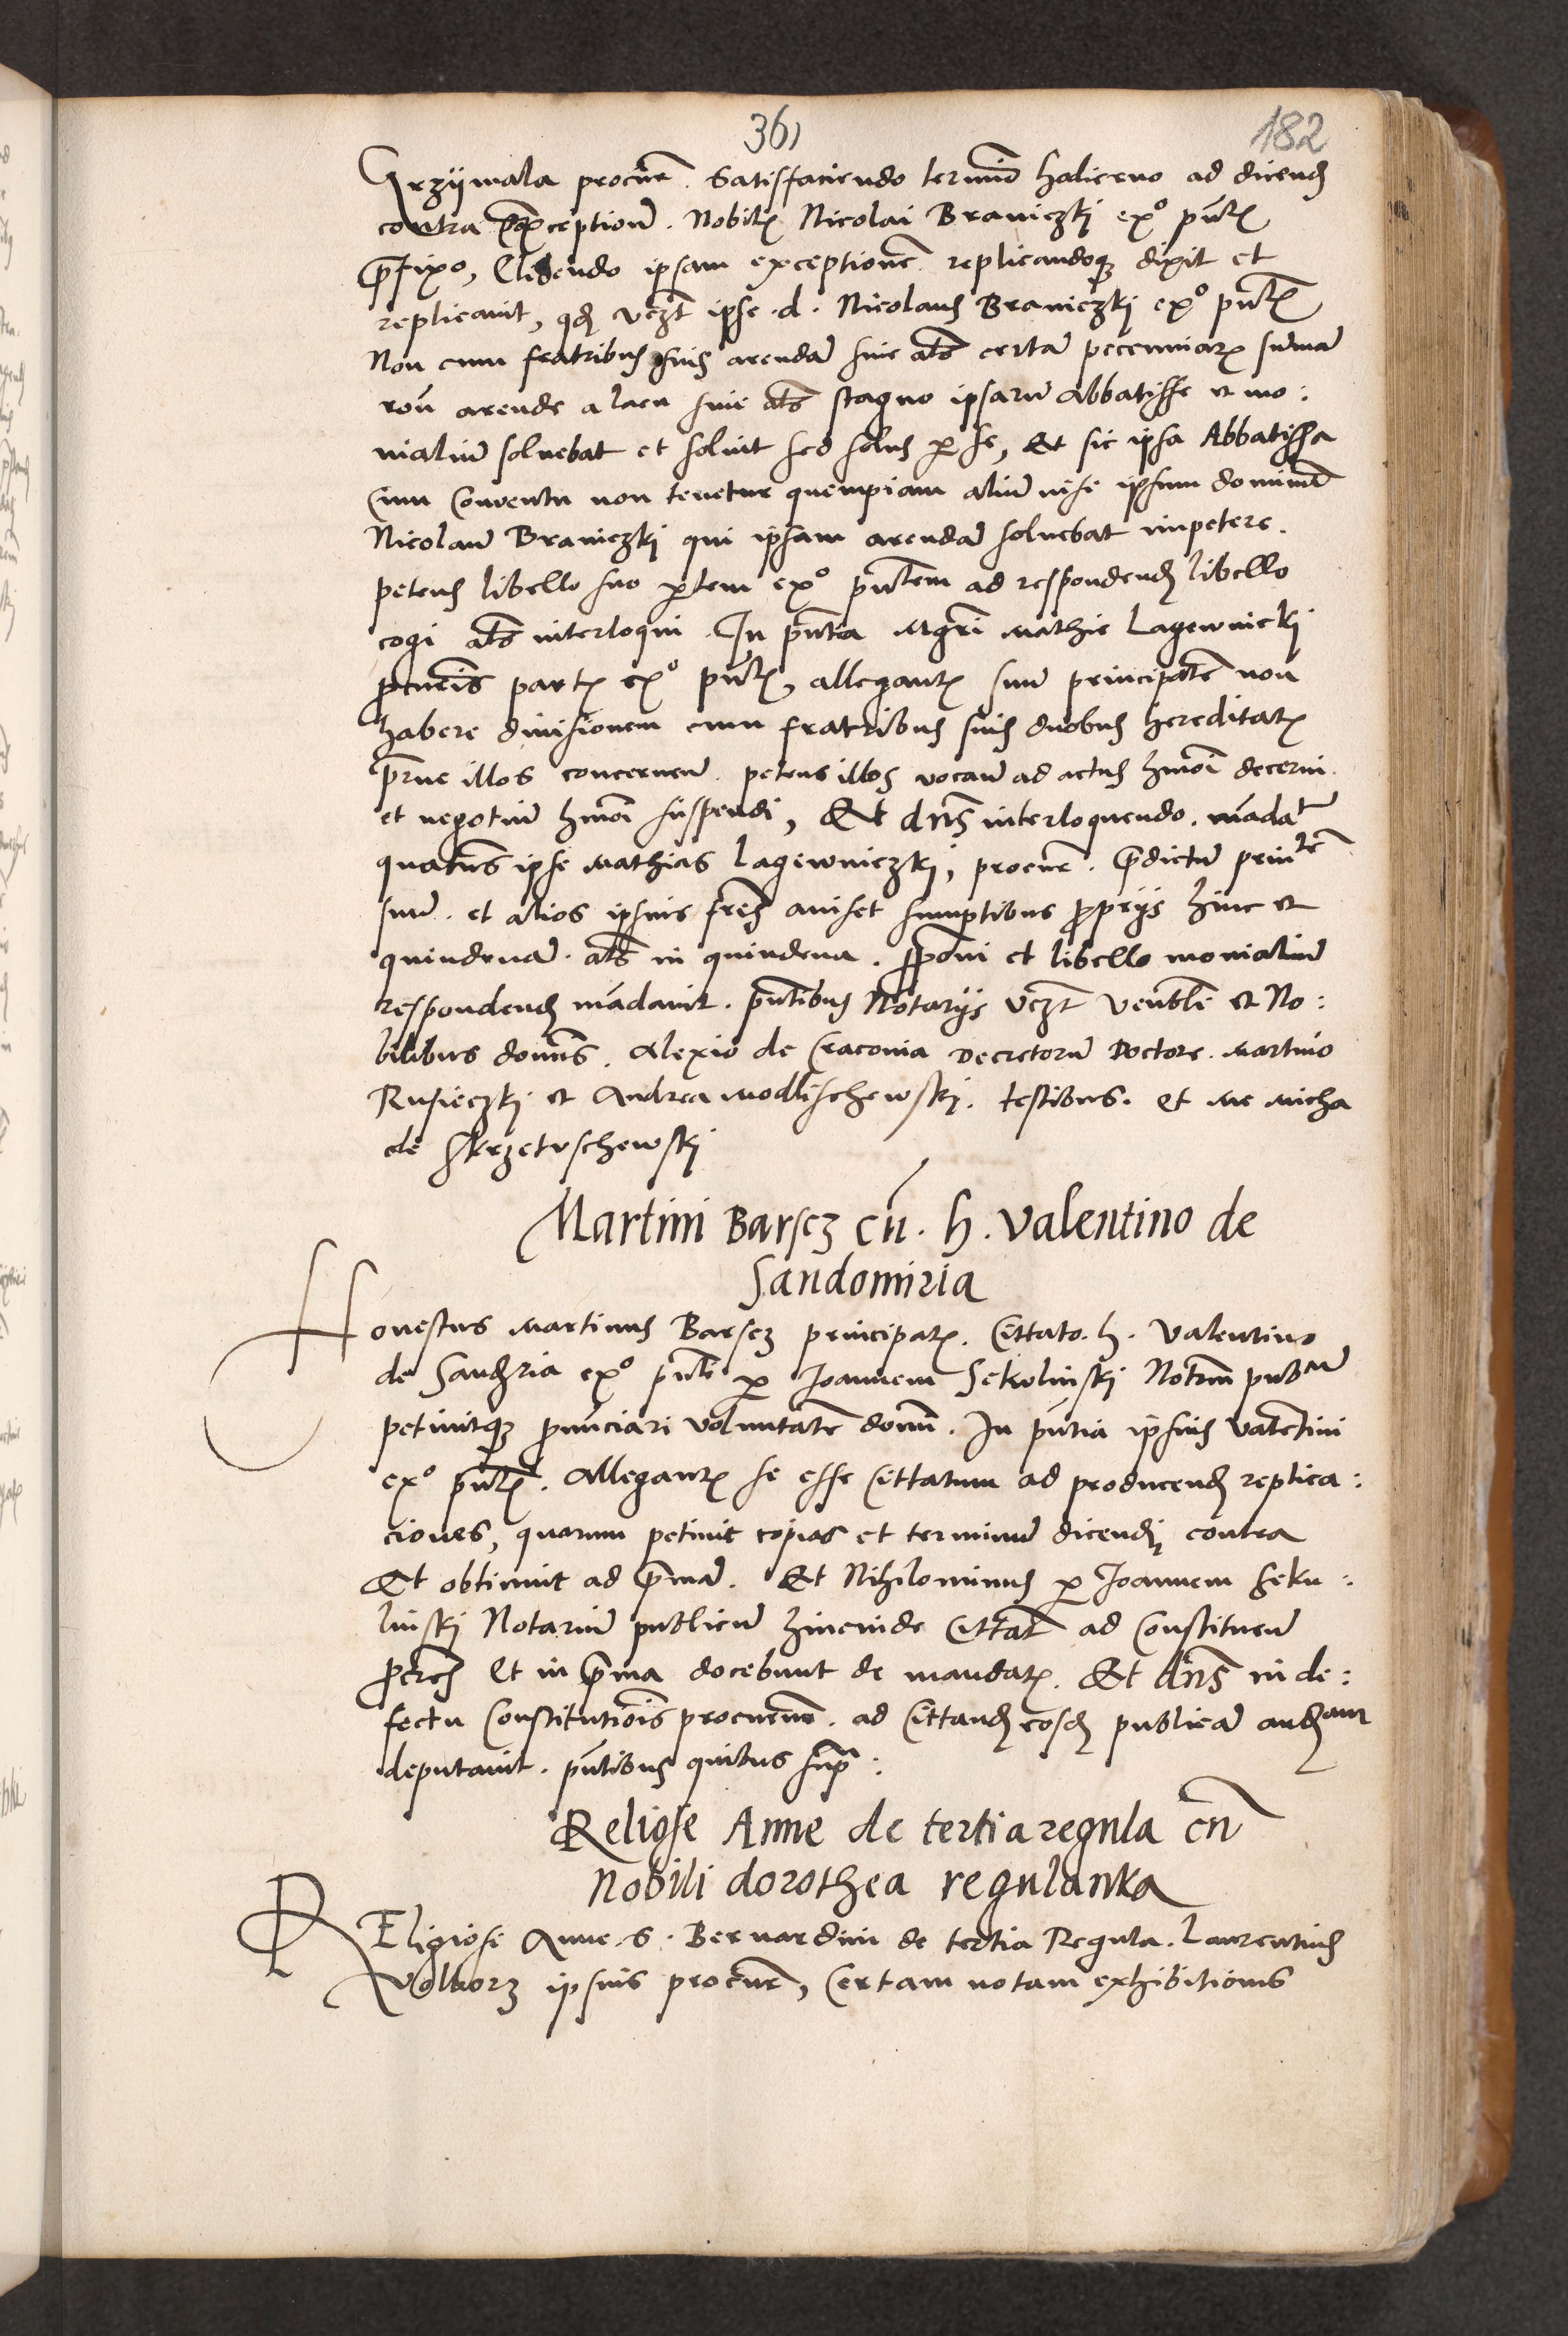 361 182
Grzijmala procūr. Satisfaciendo terminō halierno ad dicend
contra exceptionē. Nobilis Nicolai Braniczki exº pūtis
p̄fixo, Eledendo ipsam exceptionē replicandoqz dixit et
replicauit, qd vezt ipse .d. Nicolaus Braniczki exº pūtis
Non cum fratribus suis arendā siue als certā pecunniarz sūmā
roñ arende a lacu siue als stagno ipsarū Abbatisse et mo:
nialiū soluebat et soluit sed solus p se, Et sic ipsa Abbatissa
cum Conventu non tenetur quempiam aliū nisi ipsum dominū
Nicolaū Braniczki qui ipsam arendā soluebat impetere.
petens libello suo ptem exº pūtem ad respondend libello
cogi als interloqui. In pūtia Mgri Mathie Lagewnicki
procūris partis exº pūtis, allegantis suū principalē non
habere diuisionem cum fratribus suis duobus hereditatis
p̄rue illos concernen. petens illos vocan ad actus hmōi decerni
et negotiū hmōi suspendi, Et dns interloquendo. mādat
quatens ipse Mathias Lagewniczki, procūr. p̄dictū prinlē
suū. et alios ipsius fres auiset sumptibus proprijs hinc et
quindenā. als in quindena. pponi et libello monialiū
respondend mādauit. pūtibus Notarijs vezt venbli et No:
bilibus domīs. Alexio de Cracouia Decretorū Doctore. Martino
Rusieczki et Andrea Modlischewski. testibus. et me Micha
de Skrzetuschewski
Martini Barscz cū. h. Valentino de
Sandomiria
Honestus Martinus Barscz principalis. Cittato. h. Valentino
de Sandria exº pūti p Joannem Sekulinski Notrm pubcum
petiuitqz pnūciari voluntatē domī. In pūtia ipsius Valentini
exº pūtis. Allegantis se esse Cittatum ad producend replica:
ciones, quarum petiuit copias et terminū dicendi contra
Et obtinuit ad p̄mā. Et Nihilominus p Joannem Seku:
linski Notariū publicū hincinde Cittati ad Constituen
procres Et in p̄ma docebunt de mandatis. Et dns in de:
fectu Constitutiōis procurum. ad Cittand eosd publicā audiam
deputauit. pūtibus quibus supra:
Religse Anne de tertia regula cū
Nobili dorothea regulanka
REligiose Anne. S. Bernardini de tertia Regula. Laurentius
Volborz ipsius procūr, Certam notam exhibitionis